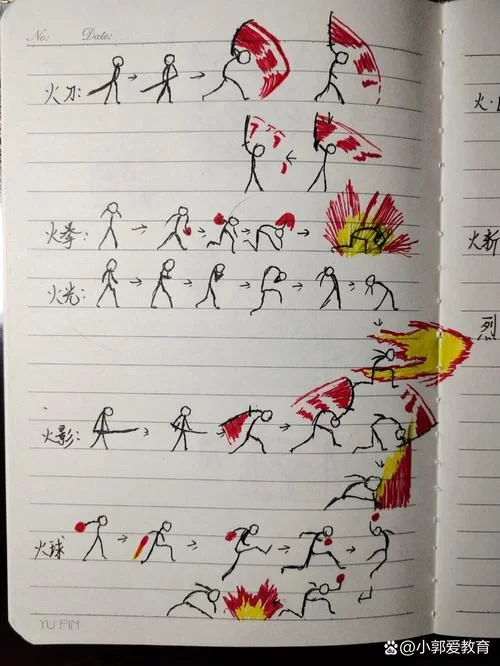 No: Date:
火刀:
火·
火拳:
火新
火光:
烈
火影:
火球
YU PIN
@小郭爱教育